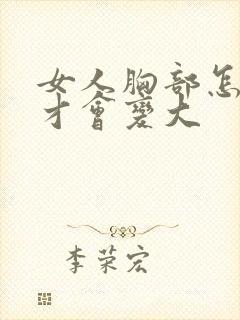 女人胸部怎
才會變大
李荣宏